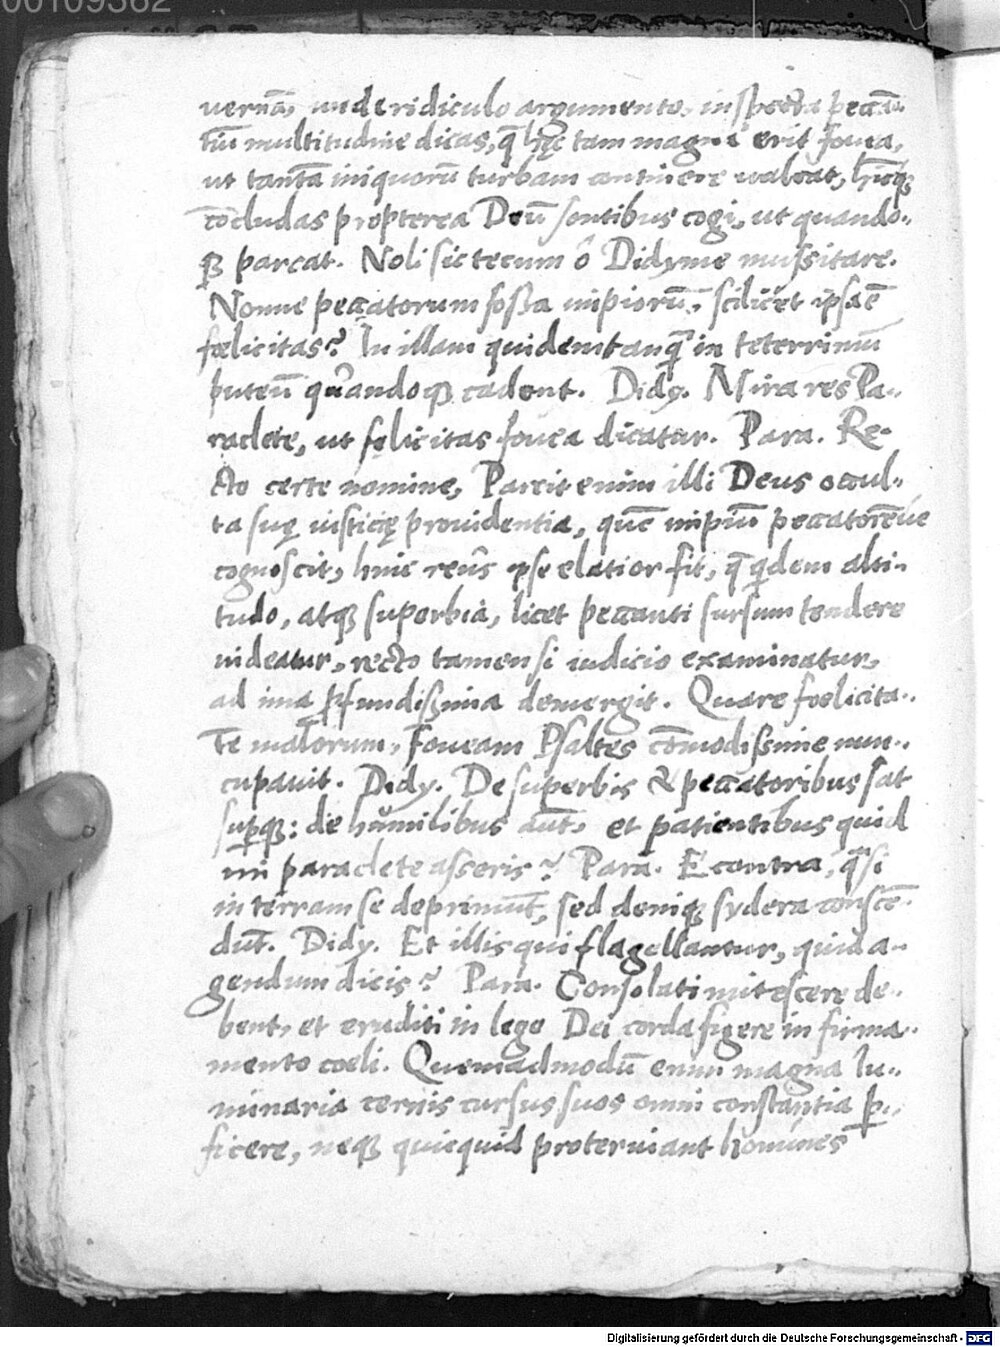 00109382
vernā, unde ridiculo argumento, inspecta peccā-
tiū multitudine dicas, q̄ hęc tam magna erit fovea,
ut tantā iniquorū turbam continere valeat,
cōcludas propterea Deū sontibus cogi, ut quando-
qꝫ parcat. Noli sic tecum ô Didyme mussitare.
Nonne peccatorum fossa impiorū, scilicet ipsa ē
fœlicitas? In illam quidem tanq̄ in teterrimū
puteū quandoqꝫ cadent. Didy. Mira res Pa-
raclete, ut fęlicitas fovea dicatur. Para. Re-
cto certe nomine, Parcit enim illi Deus occul-
ta suę iusticię providentia, quē impiū peccatorē ve
cognoscit, hinc reus ipse elatior fit, q̄ qͥdem alti-
tudo, atqꝫ superbia, licet peccanti sursum tendere
videatur, recto tamen si iudicio examinatur,
ad ima ꝓfundissima demergit. Quare fœlicita-
te malorum, Foveam Psaltes cōmodissime nun-
cupavit. Didy. De superbis & peccatoribus sat
suꝑqꝫ: de humilibus aūt, et patientibus quid
mi paraclete asseris? Para. E contra, q̄ si
in terram se deprimūt, sed deniqꝫ sydera conscē-
dūt. Didy. Et illis qui flagellantur, quid a-
gendum dicis? Para. Consolati mitescere de-
bent, et eruditi in lege Dei corda figere in firma-
mento coeli. Quemadmodū enim magna lu-
minaria cernis cursus suos omni constantia ꝑ-
ficere, neqꝫ quicquid proterviant homines
Digitalisierung gefördert durch die Deutsche Forschungsgemeinschaft - DFG